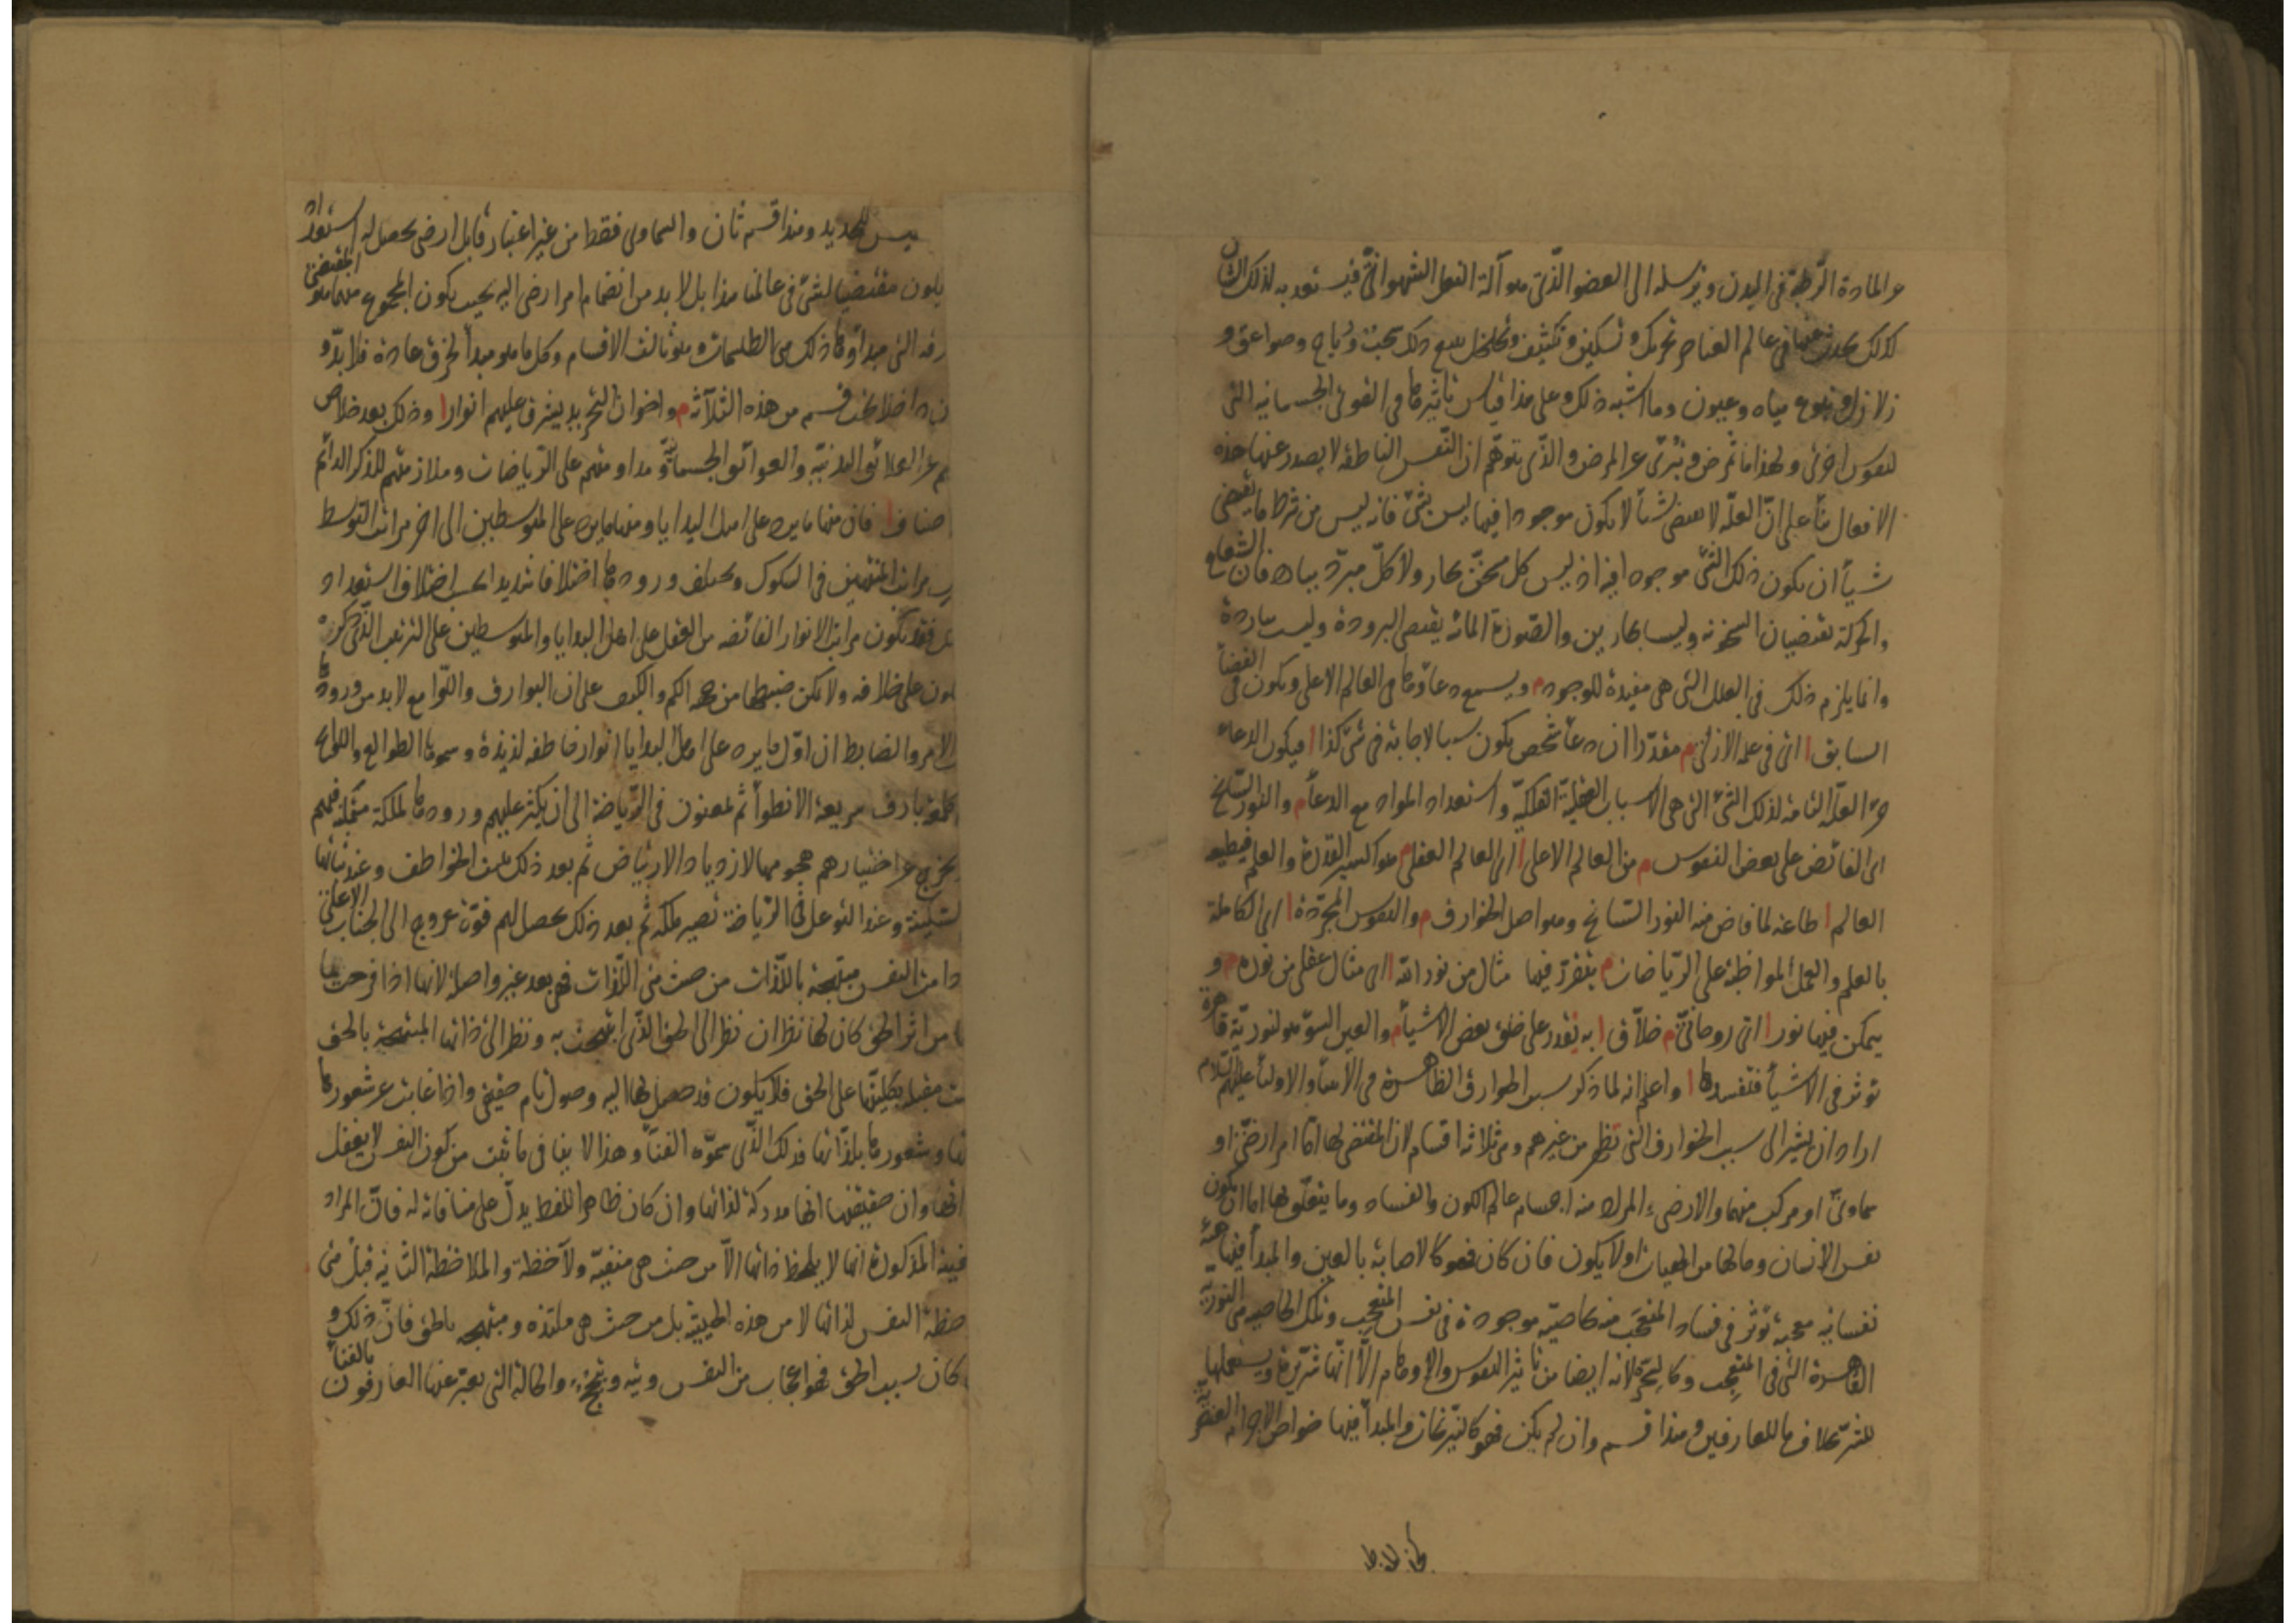 والمادة الرطبة في البدن ويرسله الى العضو الذي هو آلة الفعل الشهواني فيستعد به لذلك الشان
كذلك يحدث عنها في عالم العناصر تحريك وتسكين وتكثيف وتخلخل يتبع ذلك سحب ورياح وصواعق و
زلازل ونبوع مياه وعيون وما اشبه ذلك وعلى هذا قياس تاثيرها في القوى الجسمانية التي
لنفوس اخرى ولهذا ما تمرض وتبرئ عن المرض والذي يتوهم ان النفس الناطقة لا يصدر عنها هذه
الافعال بنأ على انّ العلّة لا تقتضى شيأ لا يكون موجودا فيها ليس بشئ فانه ليس من شرط ما يقتضى
شيأ ان يكون ذلك الشئ موجودا فيه اذ ليس كل مسخّن بحار ولا كلّ مبرّد ببارد فان الشعاع
والحركة تقتضيان السخونة وليسا بحارين والصّورة المائية يقتضى البرودة وليست بباردة
وانما يلزم ذلك في العلل التي هي مفيدة للوجود م ويسمع دعاؤها في العالم الاعلى ويكون في القضأ
السابق ا اى في علمه الازلى م مقدّرا ان دعأ شخص يكون سببا لاجابة في شئ كذا ا فيكون الدعاء
جزء العلّة التامة لذلك الشئ التي هي الاسباب العقلية الفلكيّة واستعداد المواد مع الدعأ م والنور السّانح
اى الفائض على بعض النفوس م من العالم الاعلى ا اى العالم العقلى م هو اكسير القدرة والعلم فيطيعه
العالم ا طاعة لما فاض منه النور السّانح وهو اصل الخوارق م والنفوس المجرّدة ا اى الكاملة
بالعلم والعمل المواظبة على الريّاضات م يتقرّر فيها مثال من نور الله ا اى مثال عقلى من نوره م و
يتمكن فيها نور ا اى روحانىّ م خلاّق ا به تقدر على خلق بعض الاشيأ م والعين السوّ هو لنوريّة قاهرة
توثر في الاشيأ فتفسدها ا واعلم انه لما ذكر سبب الخوارق الظاهرة من الانبيأ والاوليأ عليهم السّلام
اراد ان يشير الى سبب الخوارق التي تظهر من غيرهم وهى ثلاثة اقسام لان المقتضى لها امّا امر ارضّى او
سماوىّ او مركب منهما والارضى المراد منه اجسام عالم الكون والفساد وما يتعلّق بها اما ان يكون
نفس الانسان وما لها من الهيات او لا يكون فان كان فهو كالاصابة بالعين والمبدأ فيها هيئة
نفسانيه معجبة توثر في فساد المتعجّب منه بخاصيّة موجودة في نفس المتعجّب وتلك الخاصيه هى النوريّة
القاهرة التي في المتعجب وكالسحر لانه ايضا من تاثير النفوس والاوهام الاّ انّها شرّيرة ويستعملها
للشرّ بخلاف ما للعارفين وهذا قسم وان لم يكن فهو كالنيرنجات والمبدأ فيها خواص الاجرام العنصريّة
يس للحديد وهذا قسم ثان والسماوى فقط من غير اعتبار قابل ارضى يحصل له استعداد
يكون مقتضيا لشئ في عالمنا هذا بل لا بد من انضمام امر ارضى اليه بحيث يكون المجموع منهما هو المقتضى
التي مبدأوها ذلك هى الطلسمات وهو ثالث الاقسام وكل ما هو مبدأ لخرق عادة فلا بدّ و
ان داخلا تحت قسم من هذه الثلاثة م واخوان التجريد يشرق عليهم انوار ا وذلك بعد خلاص
عن العلائق البدنيّة والعوائق الجسمانيّة ومداومتهم على الرّياضات وملازمتهم للذكر الدائم
اصناف ا فان منها ما يرد على اهل البدايا ومنها ما يرد على المتوسطين الى اخر مراتب التوسط
مراتب المنتهين في السلوك ويختلف ورودها اختلافا شديدا بحسب اختلاف استعداد
فقد يكون مراتب الانوار الفائضه من العقل على اهل البدايا والمتوسطين على الترتيب الذى ذكره
يكون على خلافه ولا يمكن ضبطها من جهة الكم والكيف على ان البوارق واللّوامع لا بد من ورودها
الامر والضابط ان اوّل ما يرد على اهل البدايا انوار خاطفه لذيذة وسموها الطوالع واللوائح
كلمعة بارق سريعة الانطوأ ثم يمعنون في الرّياضة الى ان يكثر عليهم ورودها لملكة متمكنة فيهم
يخرج عن اختيارهم هجومها لازدياد الارتياض ثم بعد ذلك يثبت الخواطف وعند ثباتها
السّكينة وعند التوغل في الرّياضة تصير ملكة ثم بعد ذلك يحصل لهم قوّة عروج الى الجناب الاعلى
دامت النفس مبتهجة باللّذات من حيث هى اللّذات فهى بعد غير واصلة لانها اذا فرحت بما
من اثر الحق كان لها نظران نظر الى الحق الذى ابتهجت به ونظر الى ذاتها المبتهجة بالحق
مقبلة بكليتّها على الحق فلا يكون قد حصل لها اليه وصول تام حقيقى واذا غابت عن شعورها
وشعورها بلذّاتها فذلك الذى سموّه الفنأ وهذا لا ينافى ما ثبت من كون النفس لا يغفل
وان حقيقتها انها مدركة لذاتها وان كان ظاهر اللفظ يدلّ على منافاته له فانّ المراد
المذكورة انها لا يلحظ ذاتها الاّ من حيث هى منتقيّه ولاحظة والملاحظة الثانيه قبل هى
النفس لذاتها لا من هذه الحيثية بل من حيث هى ملتذه ومبتهجه بالحق فانّ ذلك و
كان بسبب الحق فهو اعجاب من النفس وتيه وتبجح والحالة التي يعبّر عنها العارفون بالفنأ